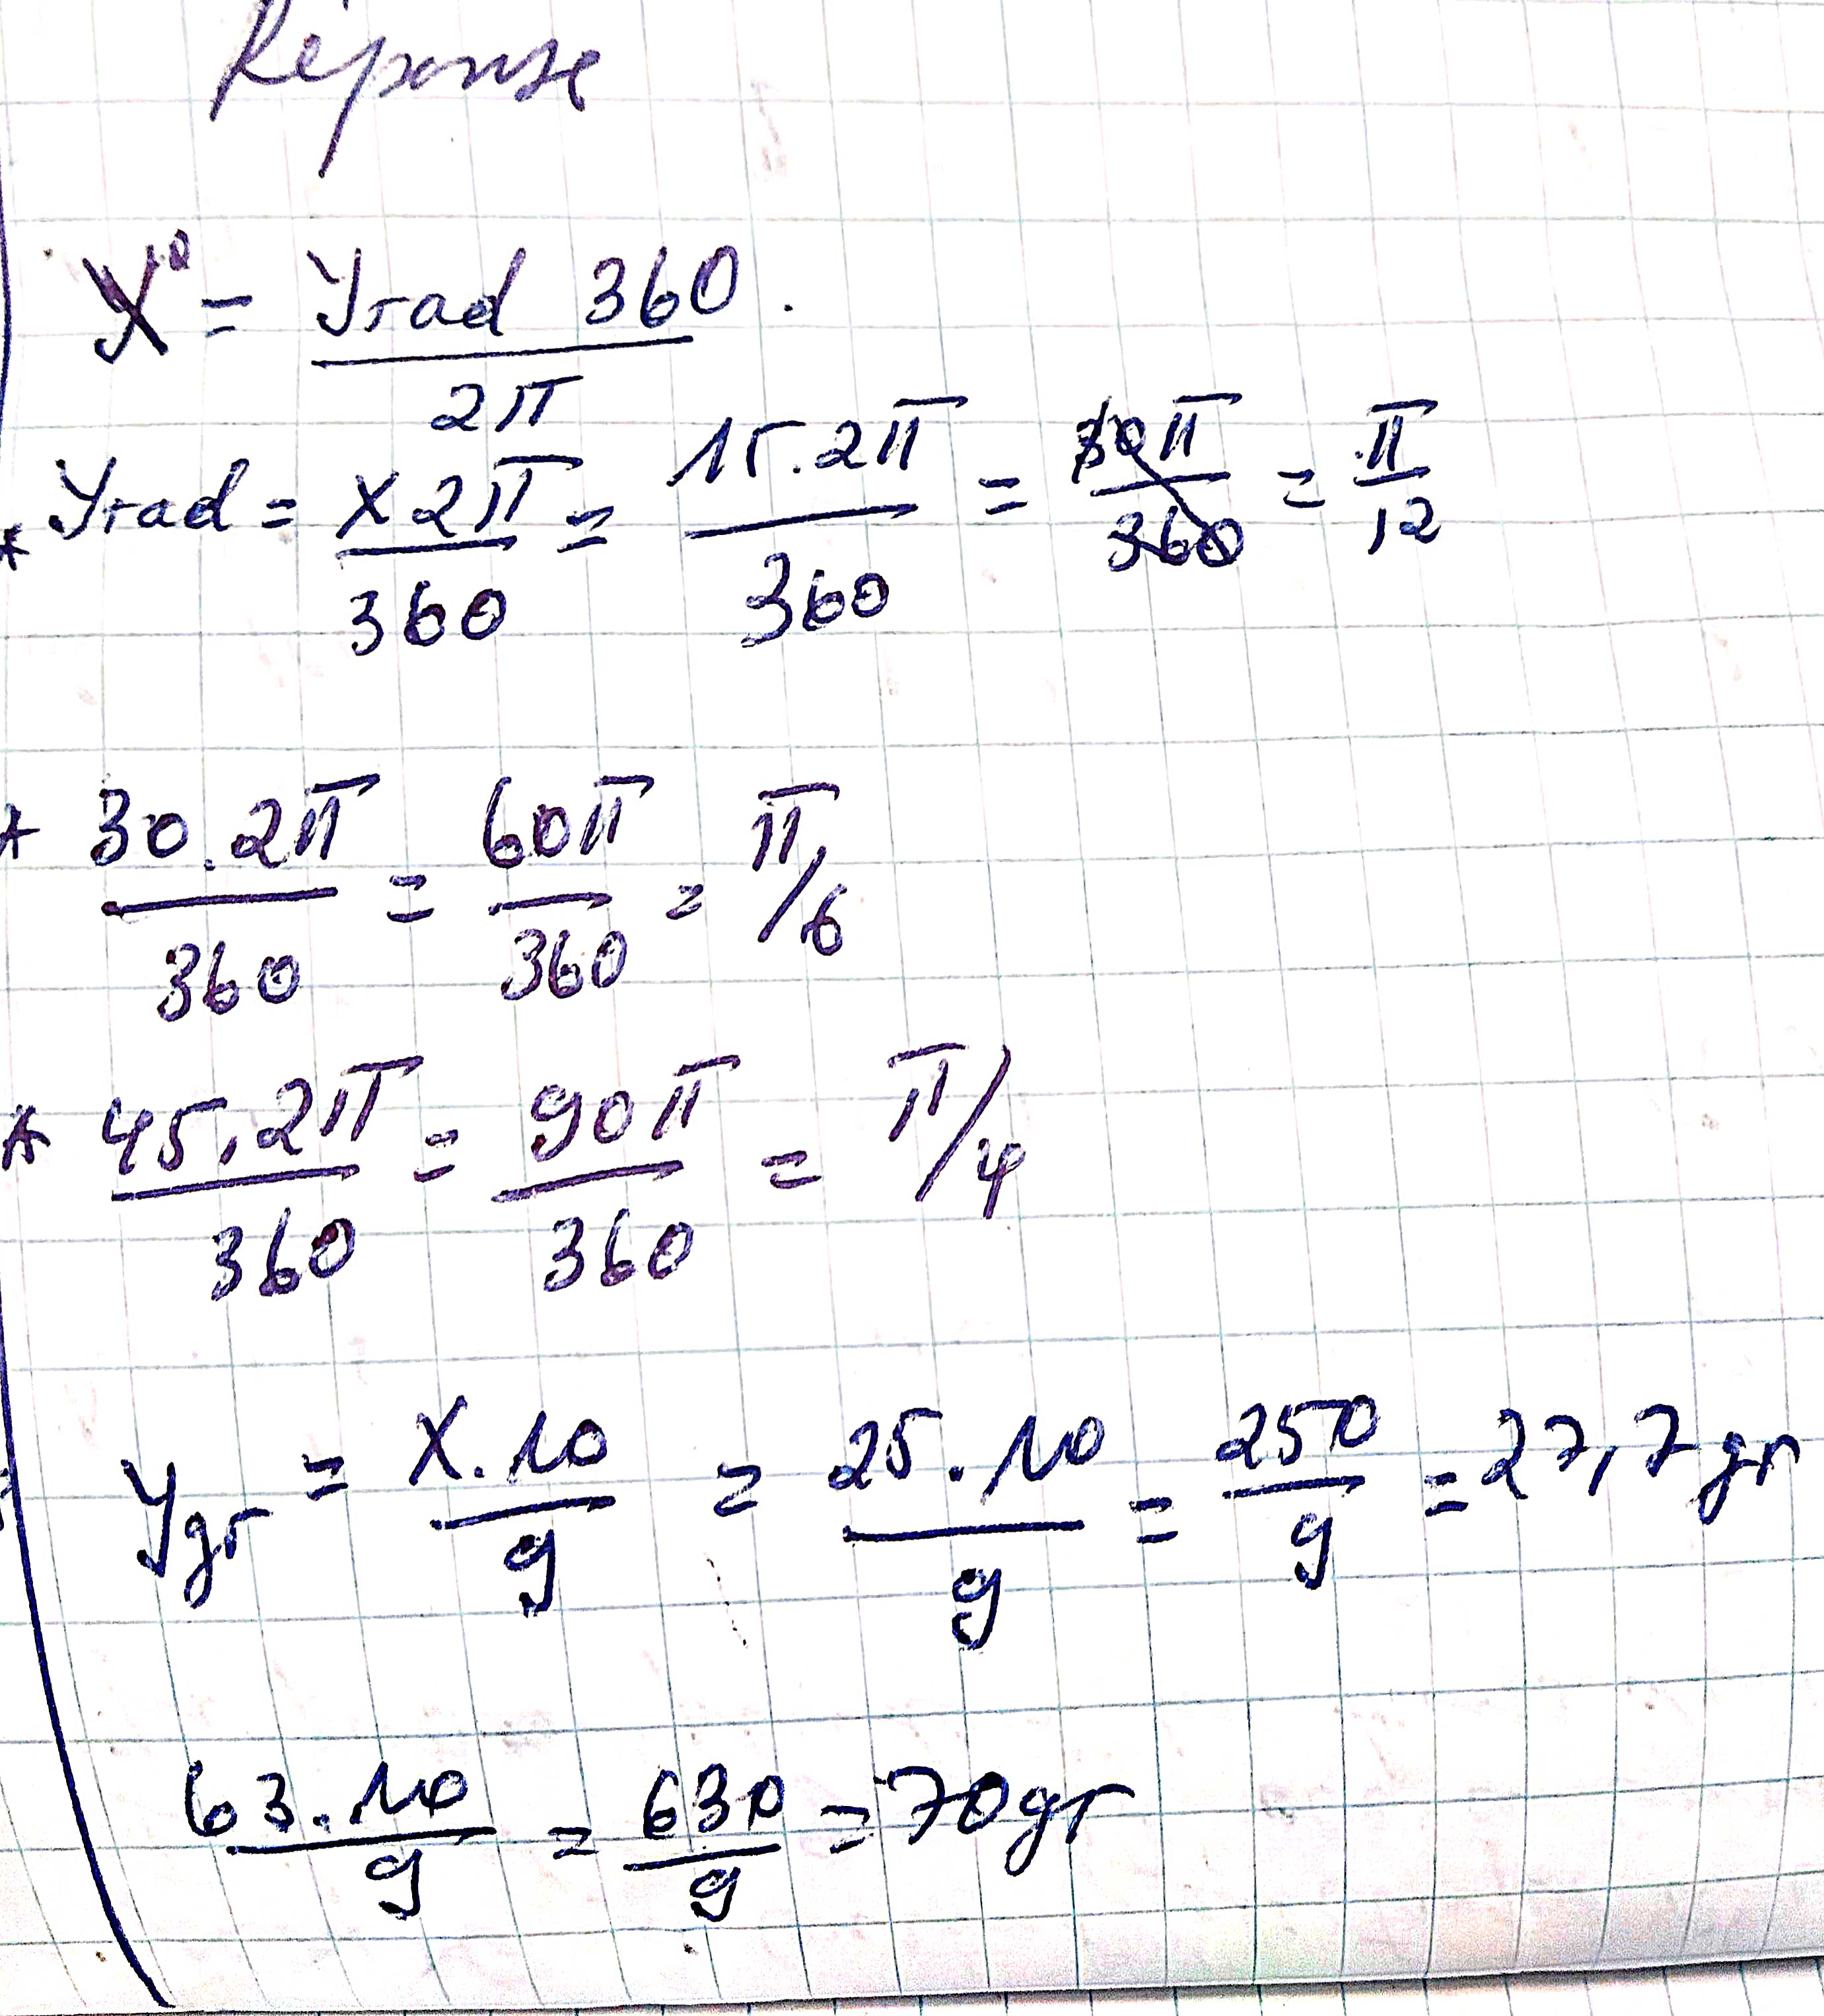 Réponse
X° = Yrad 360 / 2π
* Yrad = X 2π / 360 = 15.2π / 360 = 30π / 360 = π / 12
* 30.2π / 360 = 60π / 360 = π/6
* 45.2π / 360 = 90π / 360 = π/4
Ygr = X.10 / 9 = 25.10 / 9 = 250 / 9 = 27,7 gr
63.10 / 9 = 630 / 9 = 70gr